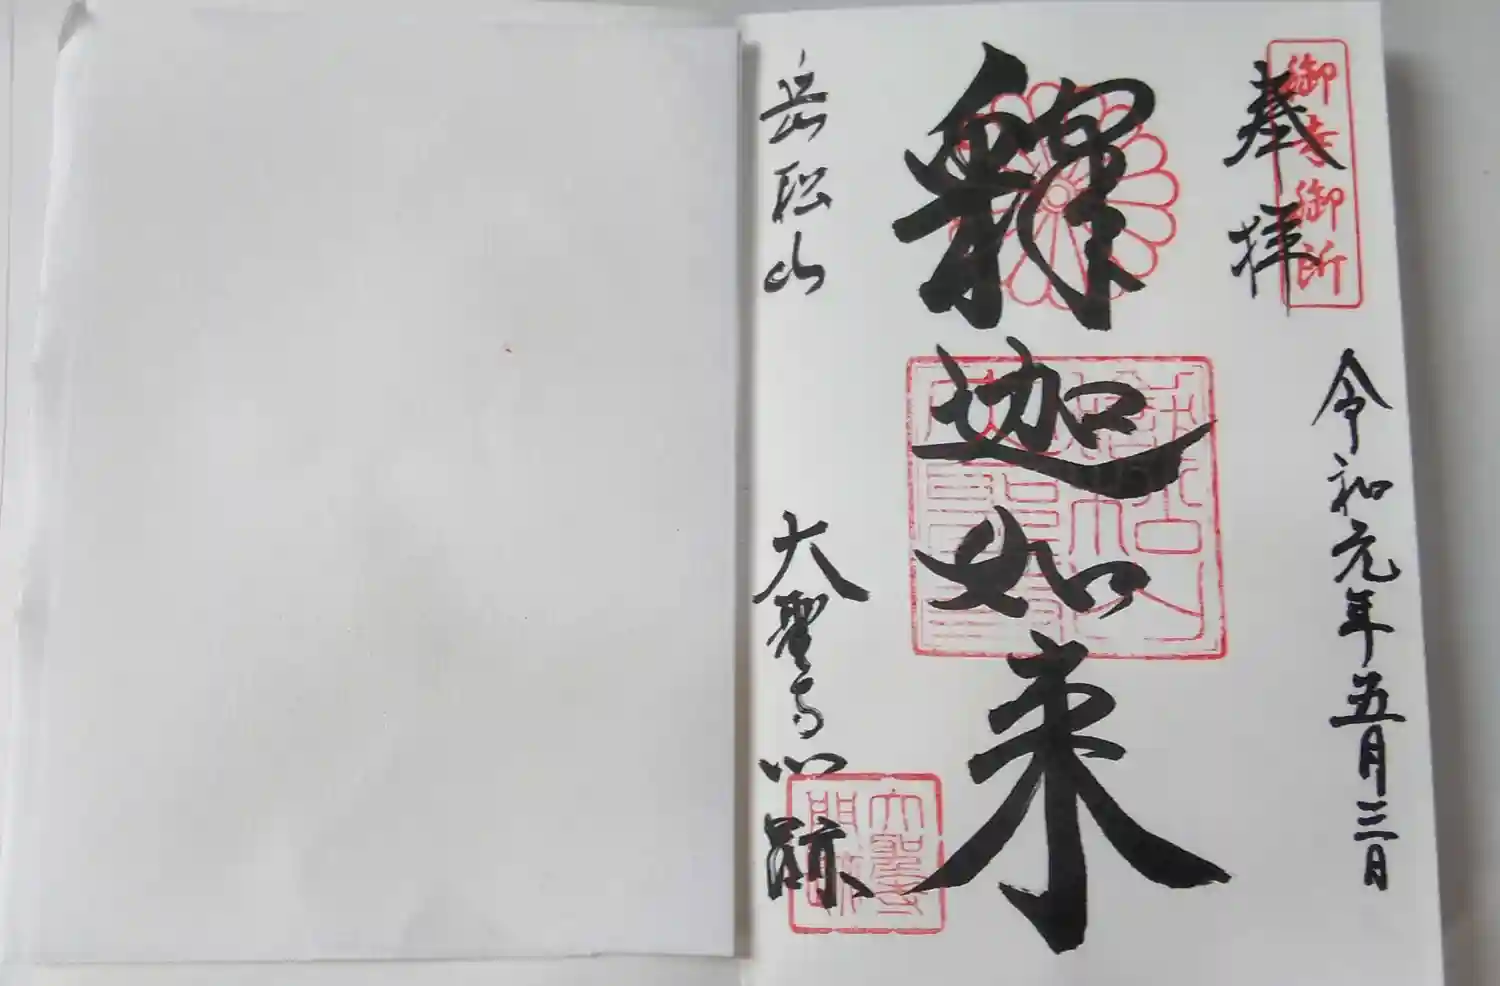 御寺御所
奉拝
令和元年五月三日
釋迦如来
岳松山
大聖寺門跡
大聖寺
門跡